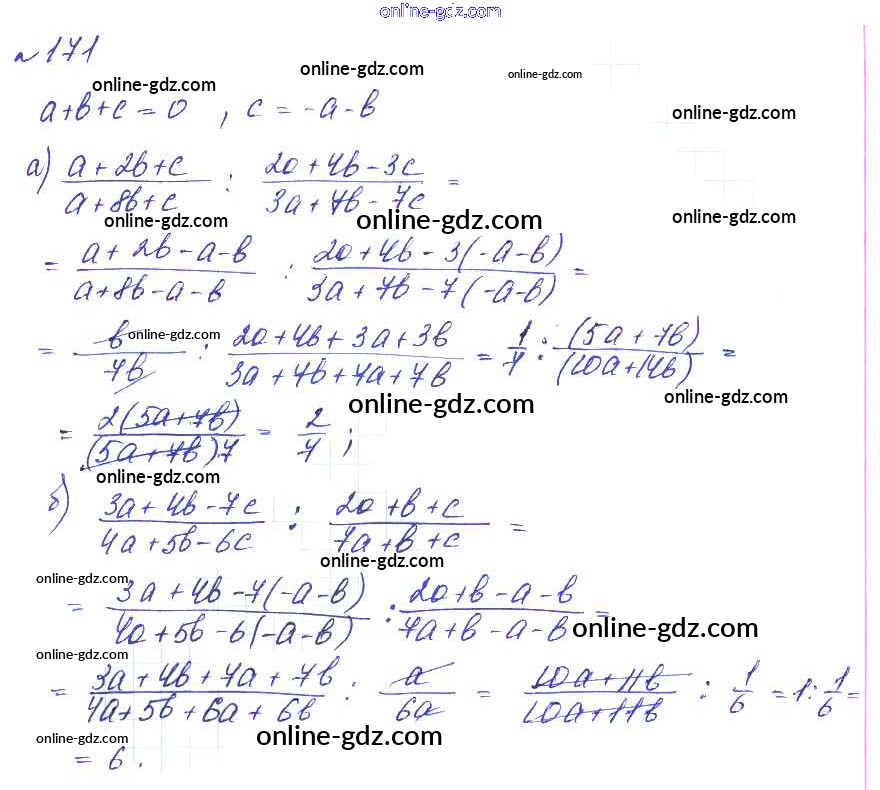 online-gdz.com
№171
online-gdz.com online-gdz.com online-gdz.com
a+b+c=0, c=-a-b
online-gdz.com
а) (a+2b+c)/(a+8b+c) : (2a+4b-3c)/(3a+7b-7c) =
online-gdz.com online-gdz.com online-gdz.com
= (a+2b-a-b)/(a+8b-a-b) : (2a+4b-3(-a-b))/(3a+7b-7(-a-b)) =
online-gdz.com
= b/7b : (2a+4b+3a+3b)/(3a+7b+7a+7b) = 1/7 : (5a+7b)/(10a+14b) =
online-gdz.com online-gdz.com
= 2(5a+7b)/(5a+7b)7 = 2/7;
online-gdz.com
б) (3a+4b-7c)/(4a+5b-6c) : (2a+b+c)/(7a+b+c) =
online-gdz.com
online-gdz.com
= (3a+4b-7(-a-b))/(4a+5b-6(-a-b)) : (2a+b-a-b)/(7a+b-a-b) =
online-gdz.com
online-gdz.com
= (3a+4b+7a+7b)/(4a+5b+6a+6b) : a/6a = (10a+11b)/(10a+11b) : 1/6 = 1:1/6 =
online-gdz.com online-gdz.com
= 6.